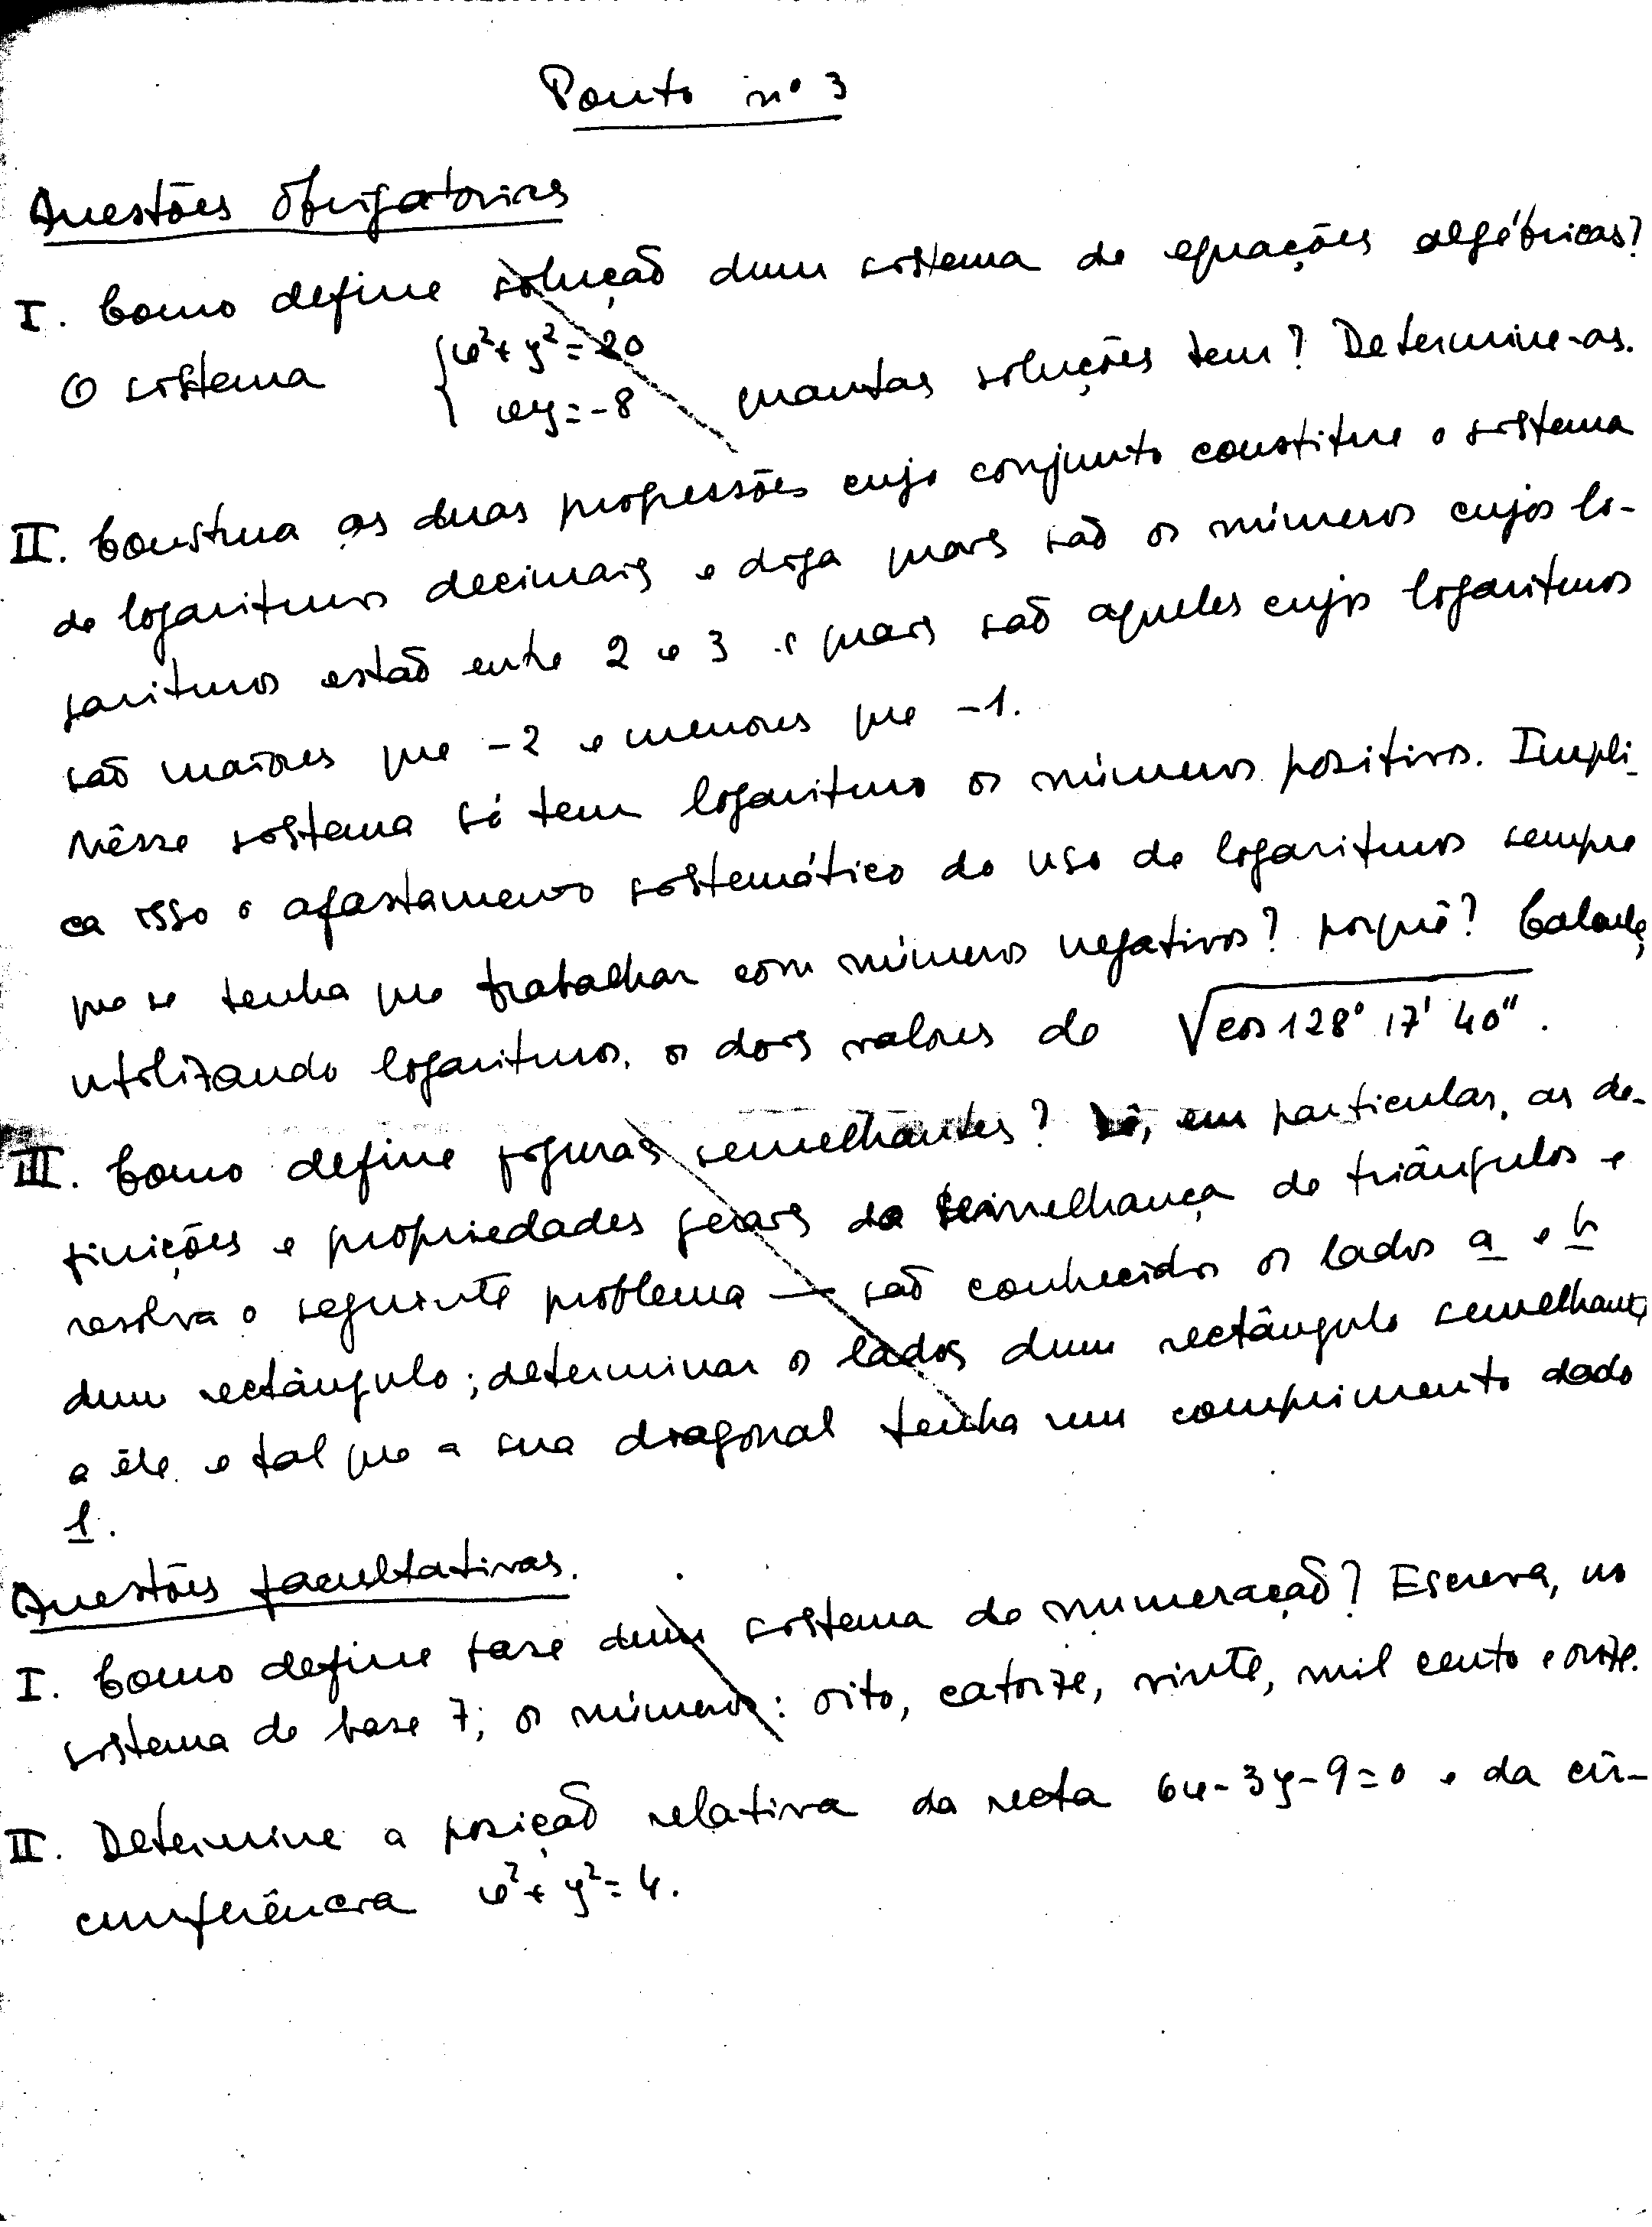 Ponto nº 3
Questões obrigatorias
I. Como define solução dum sistema de equações algébricas?
O sistema { x²+y²=20 quantas soluções tem? Determine-as.
xy=-8
II. Construa as duas progressões cujo conjunto constitue o sistema
de logaritmos decimais e diga quais são os números cujos lo-
garitmos estão entre 2 e 3 e quais são aqueles cujos logaritmos
são maiores que -2 e menores que -1.
Nêsse sistema só tem logaritmo os números positivos. Impli-
ca isso o afastamento sistemático do uso de logaritmos sempre
que se tenha que trabalhar com números negativos? porquê? Calcule,
utilizando logaritmos, os dois valores de √cos 128° 17' 40".
III. Como define figuras semelhantes? Dê, em particular, as de-
finições e propriedades gerais da semelhança de triângulos e
resolva o seguinte problema — são conhecidos os lados a e b
dum rectângulo; determinar os lados dum rectângulo semelhante
a êle e tal que a sua diagonal tenha um comprimento dado
l.
Questões facultativas.
I. Como define base dum sistema de numeração? Escreva, no
sistema de base 7, os números: oito, catorze, vinte, mil cento e onze.
II. Determine a posição relativa da recta 6x-3y-9=0 e da cir-
cunferência x²+y²=4.